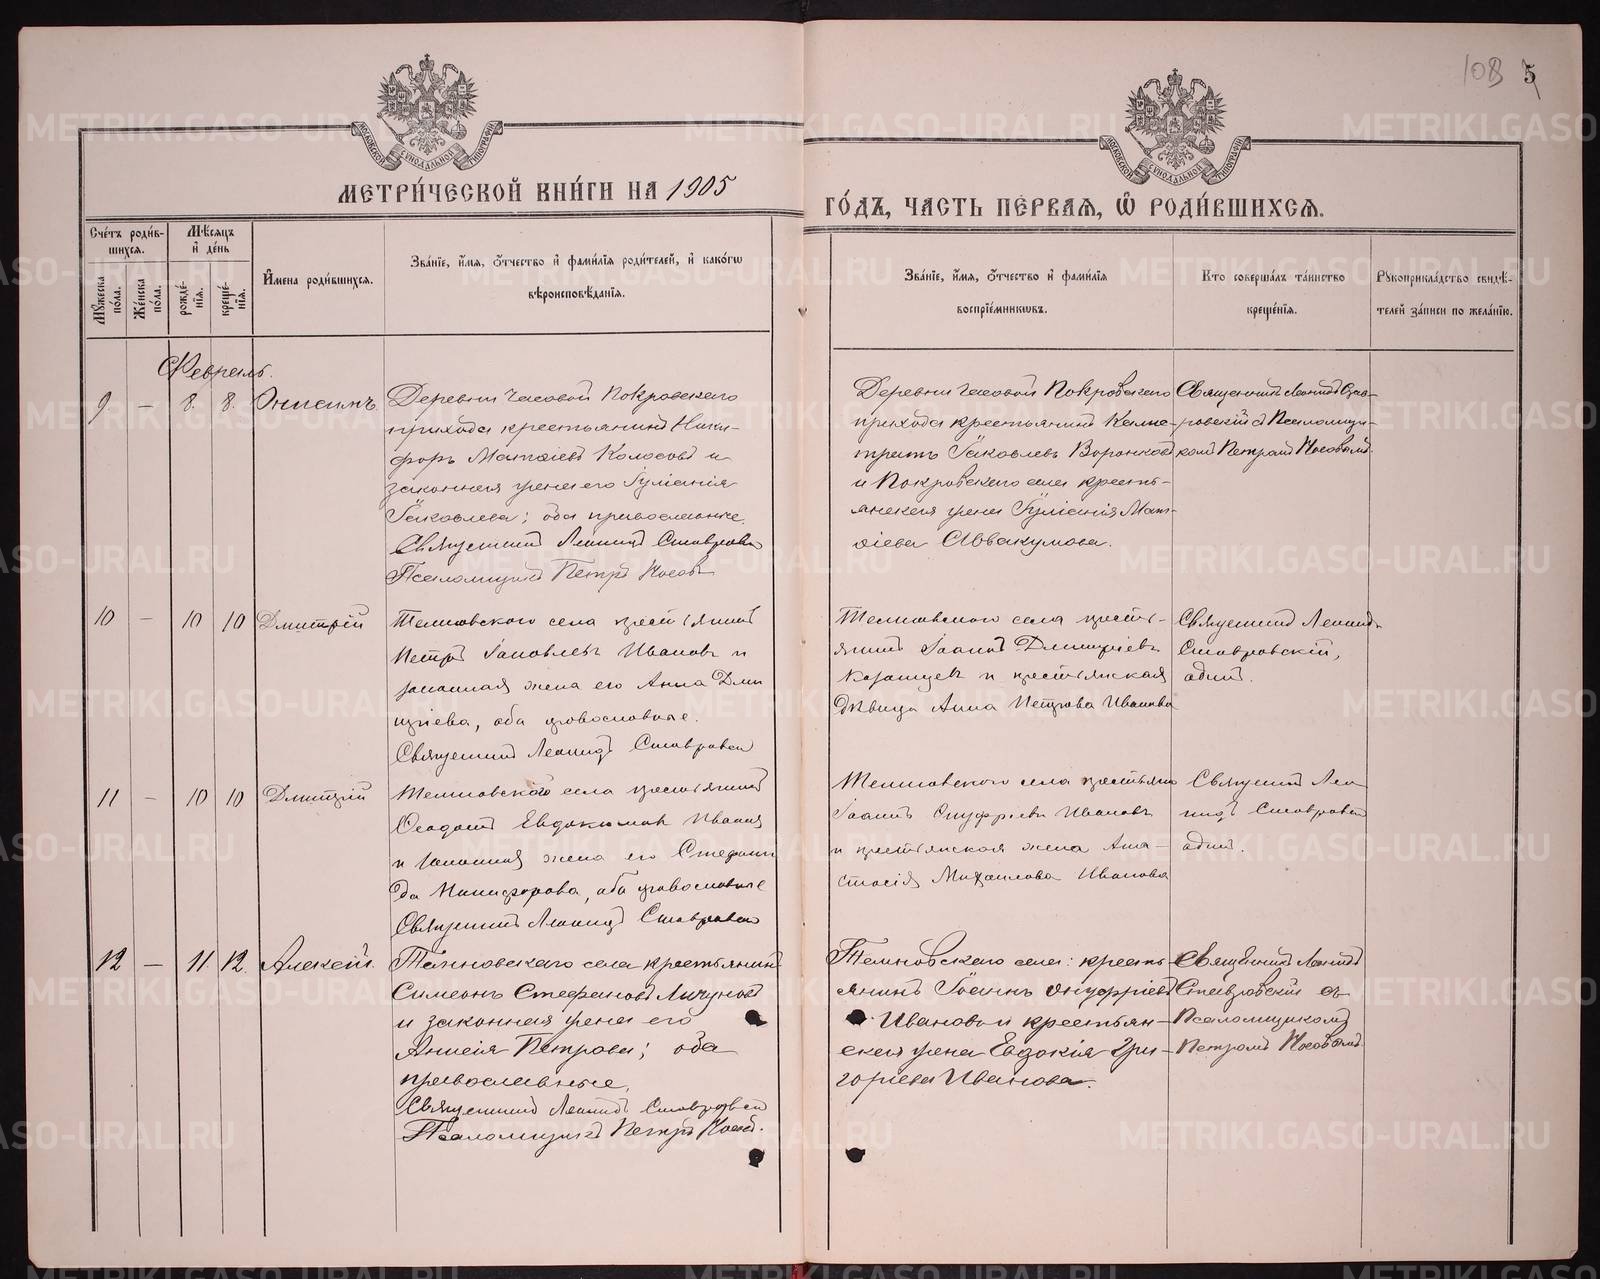 108 5
МОСКОВСКОЙ СУНОДАЛЬНОЙ ТИПОГРАФІИ
МОСКОВСКОЙ СУНОДАЛЬНОЙ ТИПОГРАФІИ
МЕТРИ́ЧЕСКОЙ КНИ́ГИ НА 1905
ГО́ДЪ, ЧАСТЬ ПЕ́РВАЯ, Ѡ РОДИ́ВШИХСЯ.
Сче́тъ роди́в-
шихся.
Му́жеска по́ла.
Же́нска по́ла.
Мѣ́сяцъ
и де́нь
рожде́-
нія.
креще́-
нія.
Имена роди́вшихся.
Зва́ніе, и́мя, о́тчество и фами́лія роди́телей, и како́гѡ
вѣроисповѣ́данія.
Зва́ніе, и́мя, о́тчество и фами́лія
воспріе́мникѡвъ.
Кто соверша́лъ та́инство
креще́нія.
Рукоприкла́дство свидѣ́-
телей за́писи по жела́нію.
Февраль.
9 — 8. 8. Онисимъ
Деревни Часовой Покровскаго
прихода крестьянинъ Ники-
форъ Матѳіевъ Колосовъ и
законная жена его Іуліанія
Іаковлева; оба православные.
Священникъ Леонидъ Ставровскій
Псаломщикъ Петръ Носовъ
Деревни Часовой Покровскаго
прихода крестьянинъ Калис-
тратъ Іаковлевъ Воронковъ
и Покровскаго села кресть-
янская жена Іуліанія Мат-
ѳіева Аввакумова.
Священникъ Леонидъ Став-
ровскій съ Псаломщи-
комъ Петромъ Носовымъ.
10 — 10 10 Дмитрій
Темновскаго села крестьянинъ
Петръ Іаковлевъ Ивановъ и
законная жена его Анна Дми
тріева, оба православные.
Священникъ Леонидъ Ставровскій
Темновскаго села кресть-
янинъ Іоаннъ Димитріевъ
и крестьянская
дѣвица Анна Петрова Иванова
Священникъ Леонидъ
Ставровскій,
одинъ.
11 — 10 10 Дмитрій
Темновскаго села крестьянинъ
Ѳеодотъ Евдокимовъ Ивановъ
и законная жена его Стефани
да Никифорова, оба православные
Священникъ Леонидъ Ставровскій
Темновскаго села крестьянинъ
Іоаннъ Онуфріевъ Ивановъ
и крестьянская жена Ана-
стасія Михаилова Иванова
Священникъ Лео
нидъ Ставровскій
одинъ.
12 — 11. 12. Алексѣй.
Темновскаго села крестьянинъ
Симеонъ Стефановъ Личуновъ
и законная жена его
Анисія Петрова; оба
православные.
Священникъ Леонидъ Ставровскій
Псаломщикъ Петръ Носовъ.
Темновскаго села: кресть-
янинъ Іоаннъ Онуфріевъ
Ивановъ и крестьян-
ская жена Евдокія Гри-
горіева Иванова.
Священникъ Леонидъ
Ставровскій съ
Псаломщикомъ
Петромъ Носовымъ.
METRIKI.GASO-URAL.RU